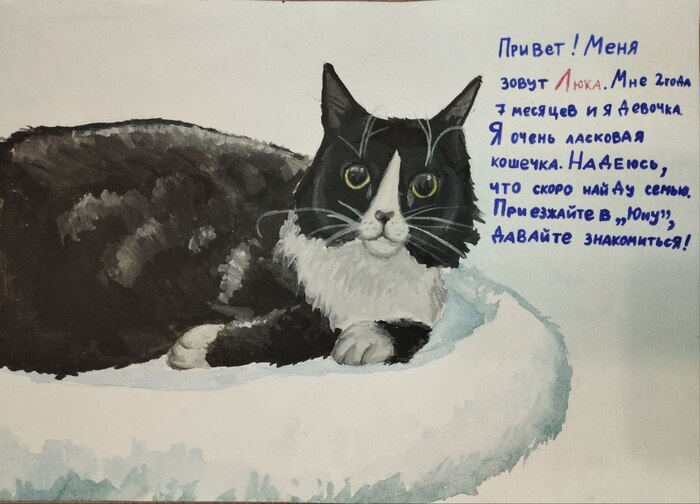 Привет! Меня
зовут Люка. Мне 2 года
7 месяцев и я девочка.
Я очень ласковая
кошечка. Надеюсь,
что скоро найду семью.
Приезжайте в „Юну”,
давайте знакомиться!